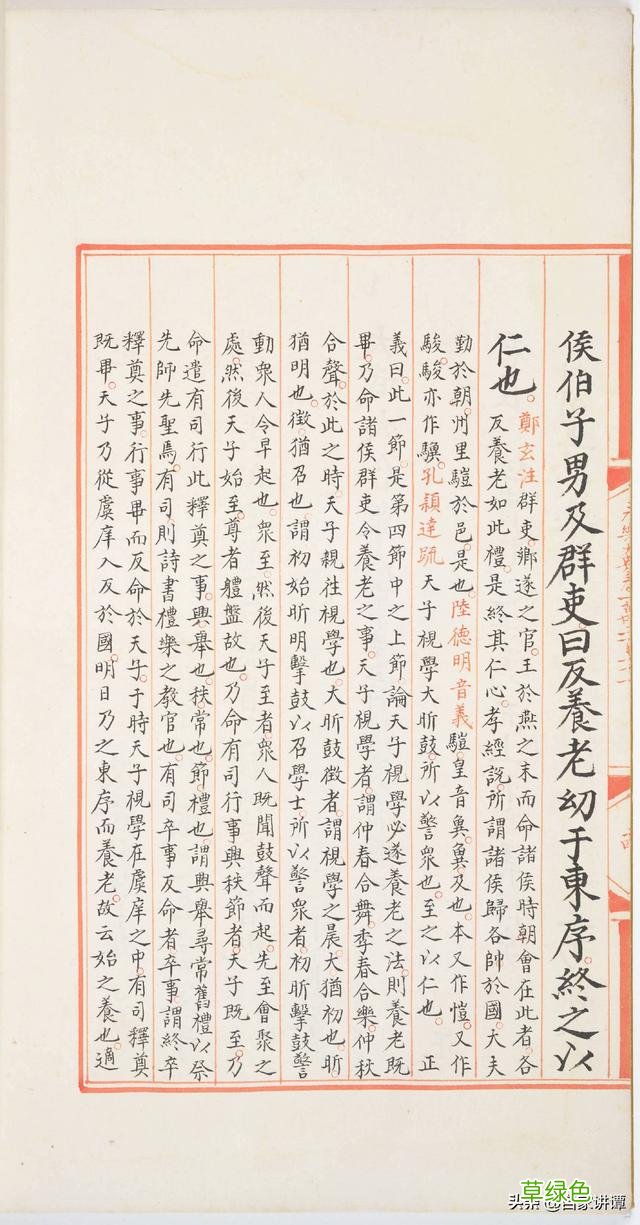 侯伯子男及群吏曰反養老幼于東序終之以
仁也鄭玄注群吏鄉遂之官王於燕之末而命諸侯時朝會在此者各
反養老如此禮是終其仁心孝經說所謂諸侯歸各帥於國大夫
勤於朝州里驖於邑是也陸德明音義驖皇音冀冀及也本又作愷又作
駿駿亦作驥孔穎達疏天子視學大昕鼓所以警衆也至之以仁也正
義曰此一節是第四節中之上節論天子視學必遂養老之法則養老既
畢乃命諸侯群吏令養老之事天子視學者謂仲春合舞季春合樂仲秋
合聲於此之時天子親往視學也大昕鼓徴者謂視學之晨大猶初也昕
猶明也徴猶召也謂初始昕明擊鼓以召學士所以警衆者初昕擊鼓警
動衆人令早起也衆至然後天子至者衆人既聞鼓聲而起先至會聚之
處然後天子始至尊者體盤故也乃命有司行事興秩節者天子既至乃
命遣有司行此釋奠之事興舉也秩常也節禮也謂興舉尋常舊禮以祭
先師先聖焉有司則詩書禮樂之教官也有司卒事反命者卒事謂終卒
釋奠之事行事畢而反命於天子于時天子視學在虞庠之中有司釋奠
既畢天子乃從虞庠入反於國明日乃之東序而養老故云始之養也適
草绿色
头条 @百家讲谭